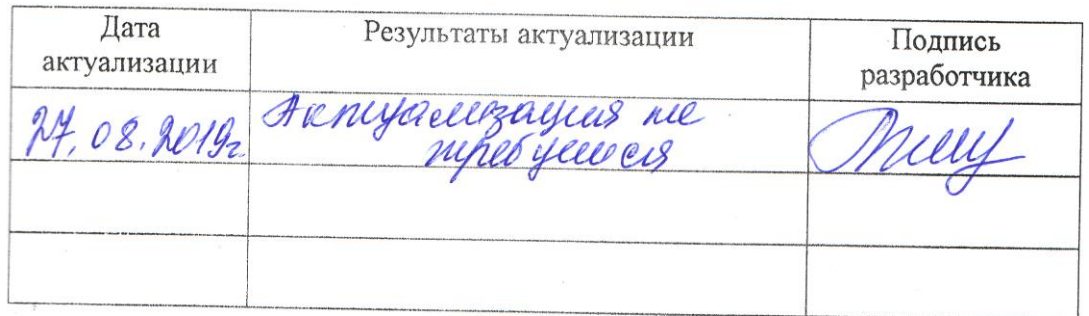 Дата актуализации
Результаты актуализации
Подпись разработчика
27.08.2019г
Актуализация не
требуется